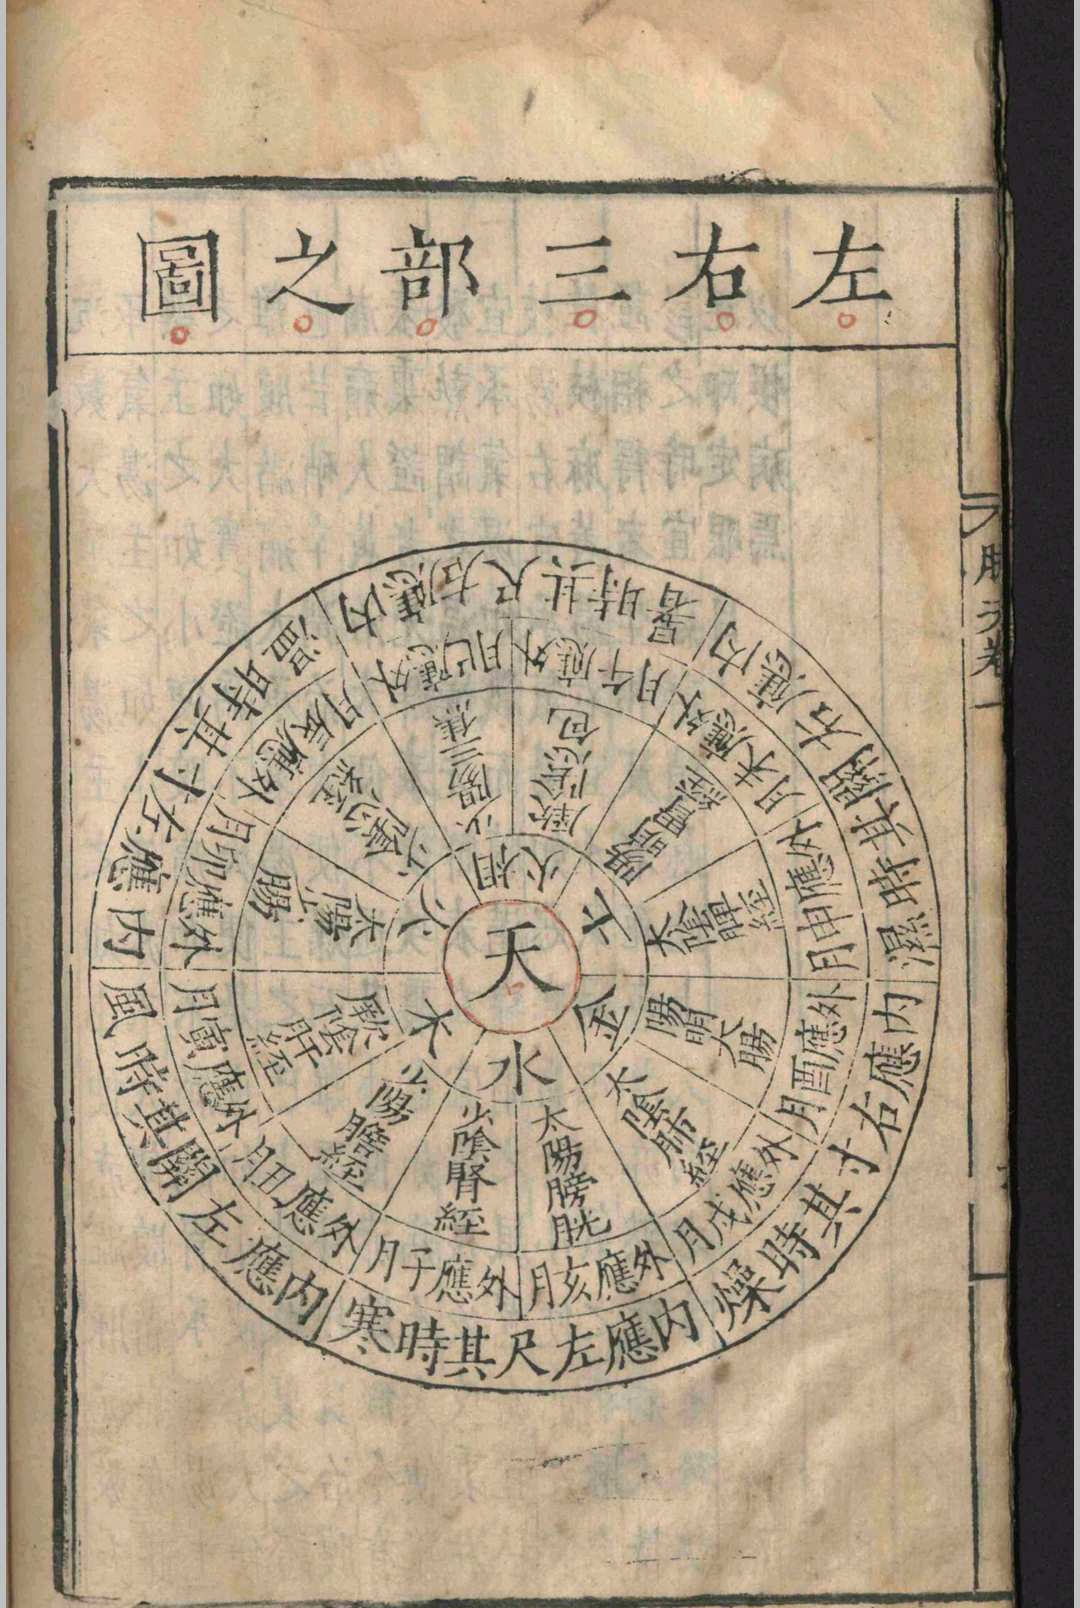 左右三部之圖
內應左尺其時寒
內應左關其時風
內應左寸其時溫
內應右尺其時暑
內應右關其時濕
內應右寸其時燥
外應亥月
外應子月
外應丑月
外應寅月
外應卯月
外應辰月
外應巳月
外應午月
外應未月
外應申月
外應酉月
外應戌月
太陽膀胱
少陰腎經
少陽膽經
厥陰肝經
太陽小腸
少陰心經
少陽三焦
厥陰包
陽明胃經
太陰脾經
陽明大腸
太陰肺經
水
木
火
相火
土
金
天
卷一